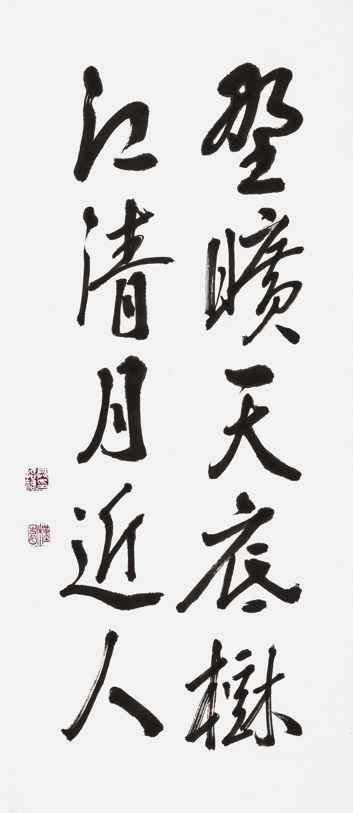 野曠天底樹
江清月近人